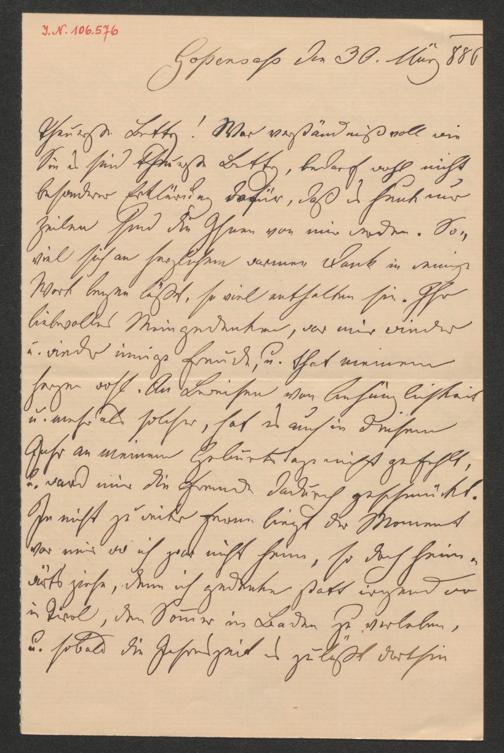 J.N. 106.576
Gossensass den 30. März 886
Theuerste Betty! Wer verständnißvoll wie
Sie es sind theuerste Betty, bedarf wohl nicht
besonderer Erklärung dafür, daß es heute nur
Zeilen sind die Ihnen von mir werden. So„
viel sich an herzlichem warmen Dank in wenige
Wort legen läßt, so viel enthalten sie. Ihr
liebevolles Meingedenken, war mir wieder
u. wieder innige Freude, u. that meinem
Herzen wohl. An Beweisen von Anhänglichkeit
u. mehr als solcher, hat es auch in diesem
Jahr an meinem Geburtstage nicht gefehlt,
u. ward mir die Fremde dadurch geschmückt.
In nicht zu weiter Ferne liegt der Moment
wo ich zwar nicht heim, so doch heim„
wärts ziehe, denn ich gedenke statt irgend wo
in Tirol, den Sommer in Baden zu verleben,
u. sobald die Jahreszeit es zuläßt dorthin